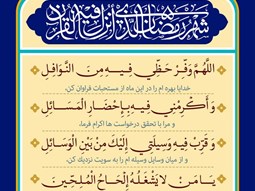 شهر رمضان الذی انزل فیه القرآن
اللَّهُمَّ وَفِّرْ حَظِّي فِيهِ مِنَ النَّوَافِلِ
خدایا بهره ام را در این ماه از مستحبات فراوان کن،
وَأَكْرِمْنِي فِيهِ بِإِحْضَارِ الْمَسَائِلِ
و مرا با تحقق درخواست ها اکرام فرما،
وَ قَرِّبْ فِيهِ وَسِيلَتِي إِلَيْكَ مِنْ بَيْنِ الْوَسَائِلِ
و از میان وسایل وسیله ام را به سویت نزدیک کن،
يَا مَنْ لَا يَشْغَلُهُ إِلْحَاحُ الْمُلِحِّينَ